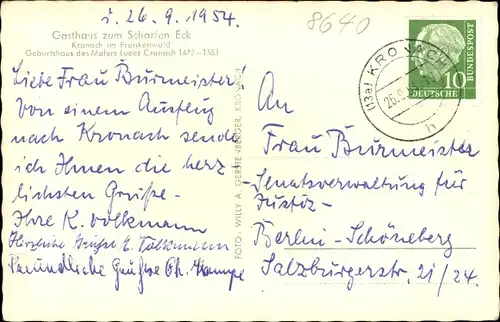 z. 26.9.1954.
8640
Gasthaus zum Scharfen Eck
Kronach im Frankenwald
Geburtshaus des Malers Lucas Cranach 1472-1553
Liebe Frau Burmeister!
Von einem Ausflug
nach Kronach sende
ich Ihnen die herz
lichsten Grüße.
Ihre K. Volkmann
Herzliche Grüße E. Volkmann
Freundliche Grüße Ch.
FOTO: WILLY A. GERSTENBERGER, KRONACH
(13a) KRONACH
26.9.
h
10
DEUTSCHE
BUNDESPOST
An
Frau Burmeister
-Senatsverwaltung für
Justiz-
Berlin-Schöneberg
Salzburgerstr. 21/24.